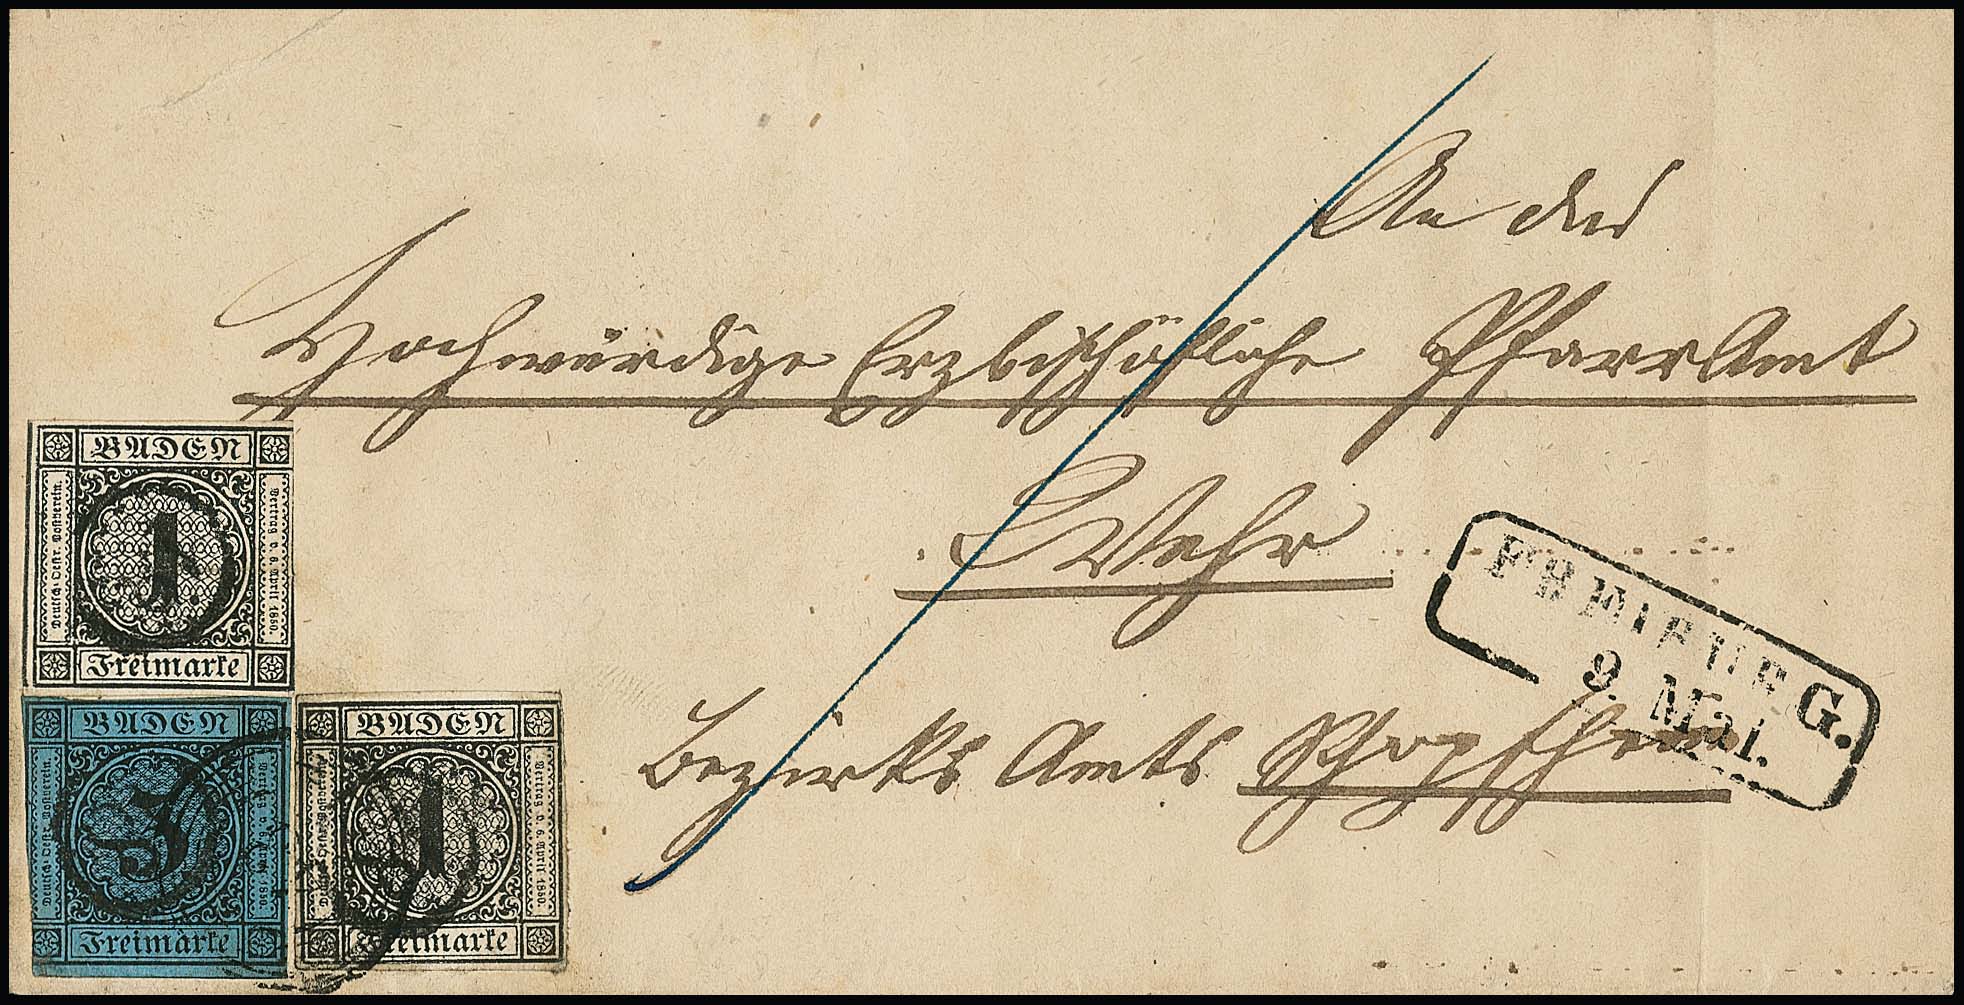 An das
Hochwürdige Erzbischöfliche Pfarr Amt
Wehr
Bezirks Amts Schopfheim
FREIBURG.
9. Mai.
BADEN
Deutsch-Oestr. Postverein.
1
Vertrag v. 6. April 1850.
Freimarke
BADEN
Deutsch-Oestr. Postverein.
3
Vertrag v. 6. April 1850.
Freimarke
BADEN
Deutsch-Oestr. Postverein.
1
Vertrag v. 6. April 1850.
Freimarke